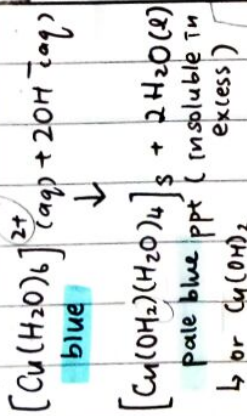 [Cu(H₂O)₆]²⁺(aq) + 2OH⁻(aq)
blue ↓
[Cu(OH₂)(H₂O)₄]s + 2H₂O(l)
pale blue ppt (insoluble in excess)
↳ or Cu(OH)₂